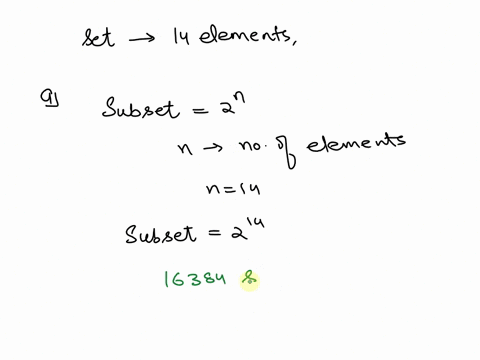 Set → 14 elements,
a) Subset = 2ⁿ
n → no. of elements
n = 14
Subset = 2¹⁴
16384 s